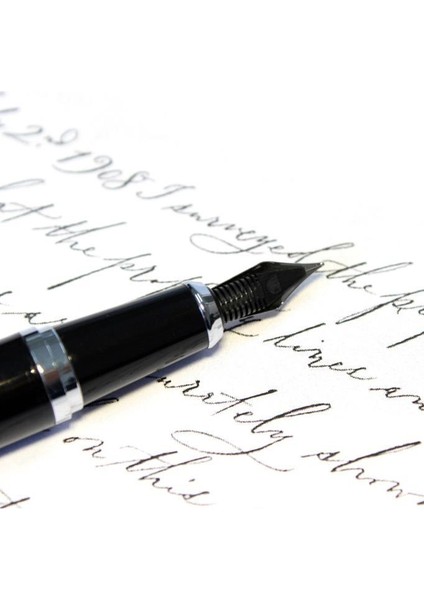 2d 1908 I surveyed
at the pro the p
lines an
urately show
on this